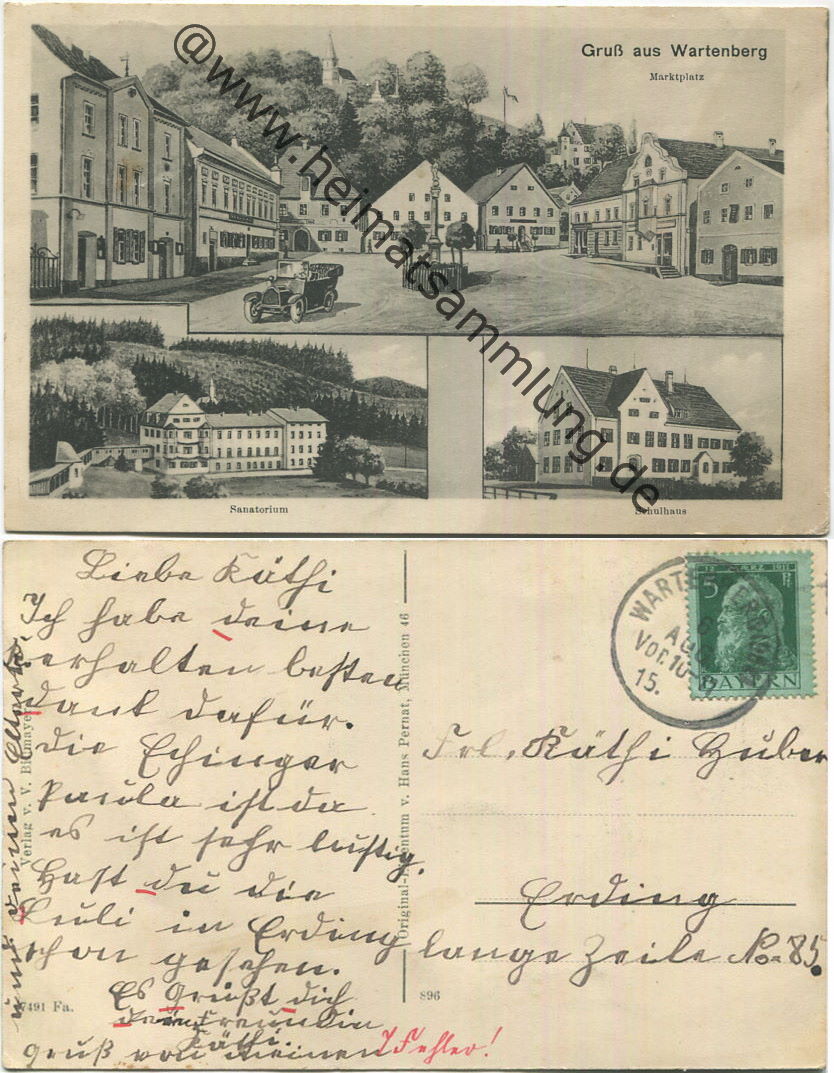 Gruß aus Wartenberg
Marktplatz
@www.heimatsammlung.de
Sanatorium
Schulhaus
Liebe Käthi
Ich habe deine
erhalten besten
dank dafür.
die Echinger
Paula ist da
es ist sehr lustig.
Hast du die
in Erding
schon gesehen.
Es Grüßt dich
freundin
Käthi.
gruß von meinen
und deinen Eltern
7 Fehler!
Verlag v. V.
7491 Fa.
Original-Eigentum v. Hans Pernat, München 46
896
12. MÆRZ 1911
5 Pf
BAYERN
WARTENBERG
AUG
Vor. 10-
15.
Frl. Käthi Huber
Erding
lange Zeile No. 85.